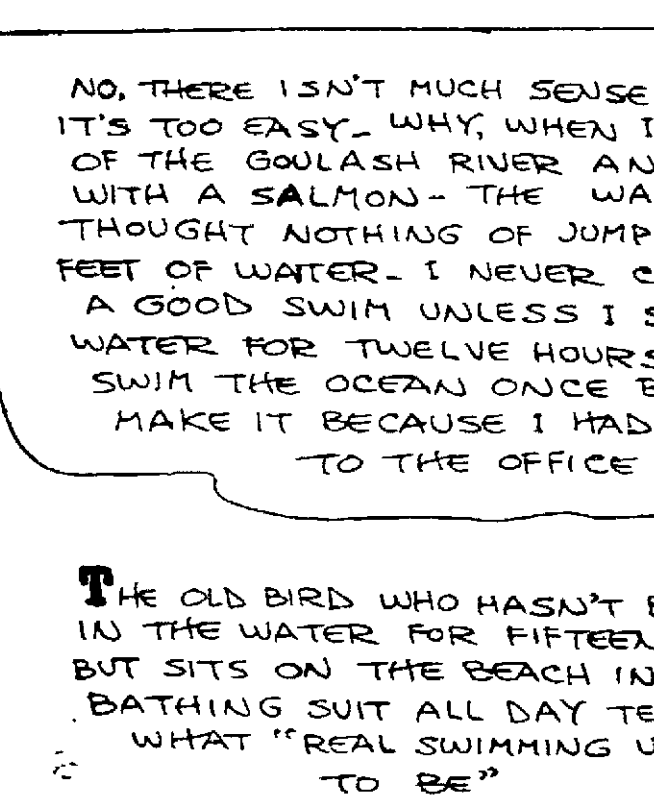 NO, THERE ISN'T MUCH SENSE
IT'S TOO EASY- WHY, WHEN I
OF THE GOULASH RIVER AN
WITH A SALMON- THE WA
THOUGHT NOTHING OF JUMP
FEET OF WATER- I NEVER C
A GOOD SWIM UNLESS I S
WATER FOR TWELVE HOURS
SWIM THE OCEAN ONCE B
MAKE IT BECAUSE I HAD
TO THE OFFICE
THE OLD BIRD WHO HASN'T B
IN THE WATER FOR FIFTEEN
BUT SITS ON THE BEACH IN
BATHING SUIT ALL DAY TE
WHAT "REAL SWIMMING U
TO BE"